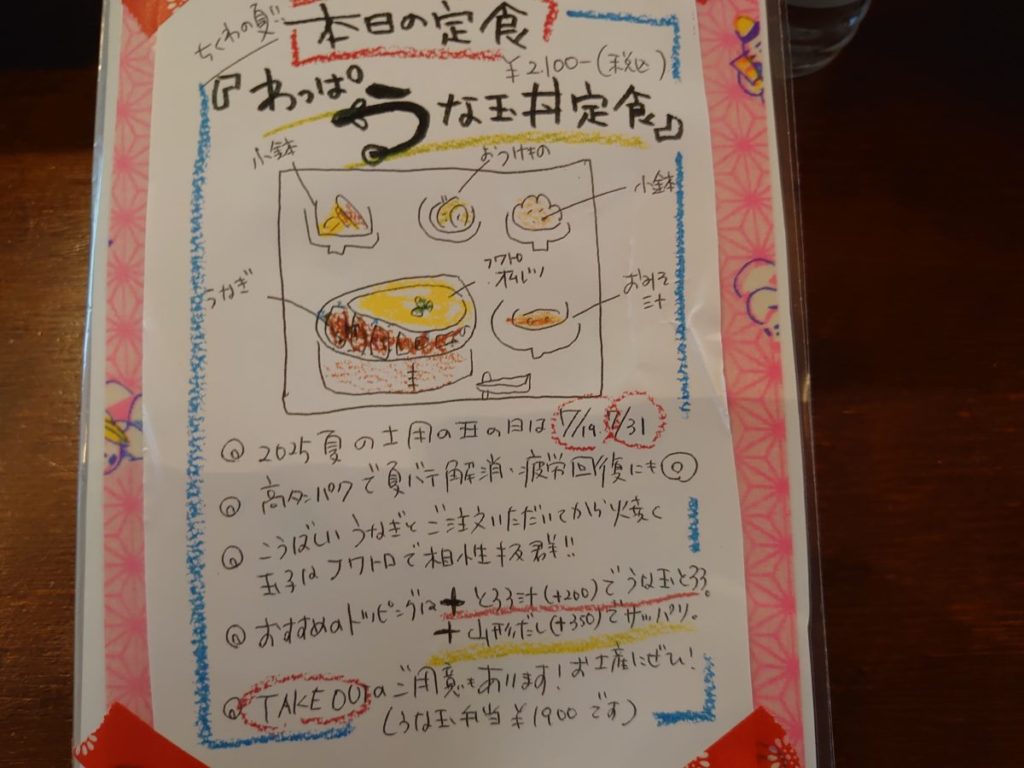 ちくわの夏!!
本日の定食
¥2,100-(税込)
『わっぱ うな玉丼定食』
小鉢
おつけもの
小鉢
うなぎ
フワトロ
オムレツ
おみそ
汁
2025夏の土用の丑の日は 7/19. 7/31
高タンパクで夏バテ解消・疲労回復にも◎
こうばしいうなぎとご注文いただいてから焼く
玉子はフワトロで相性抜群!!
おすすめのトッピングは + とろろ汁(+200)でうな玉とろろ。
+ 山形だし(+350)でサッパリ。
TAKE OUTのご用意もあります!お土産にぜひ!
(うな玉弁当¥1900です)